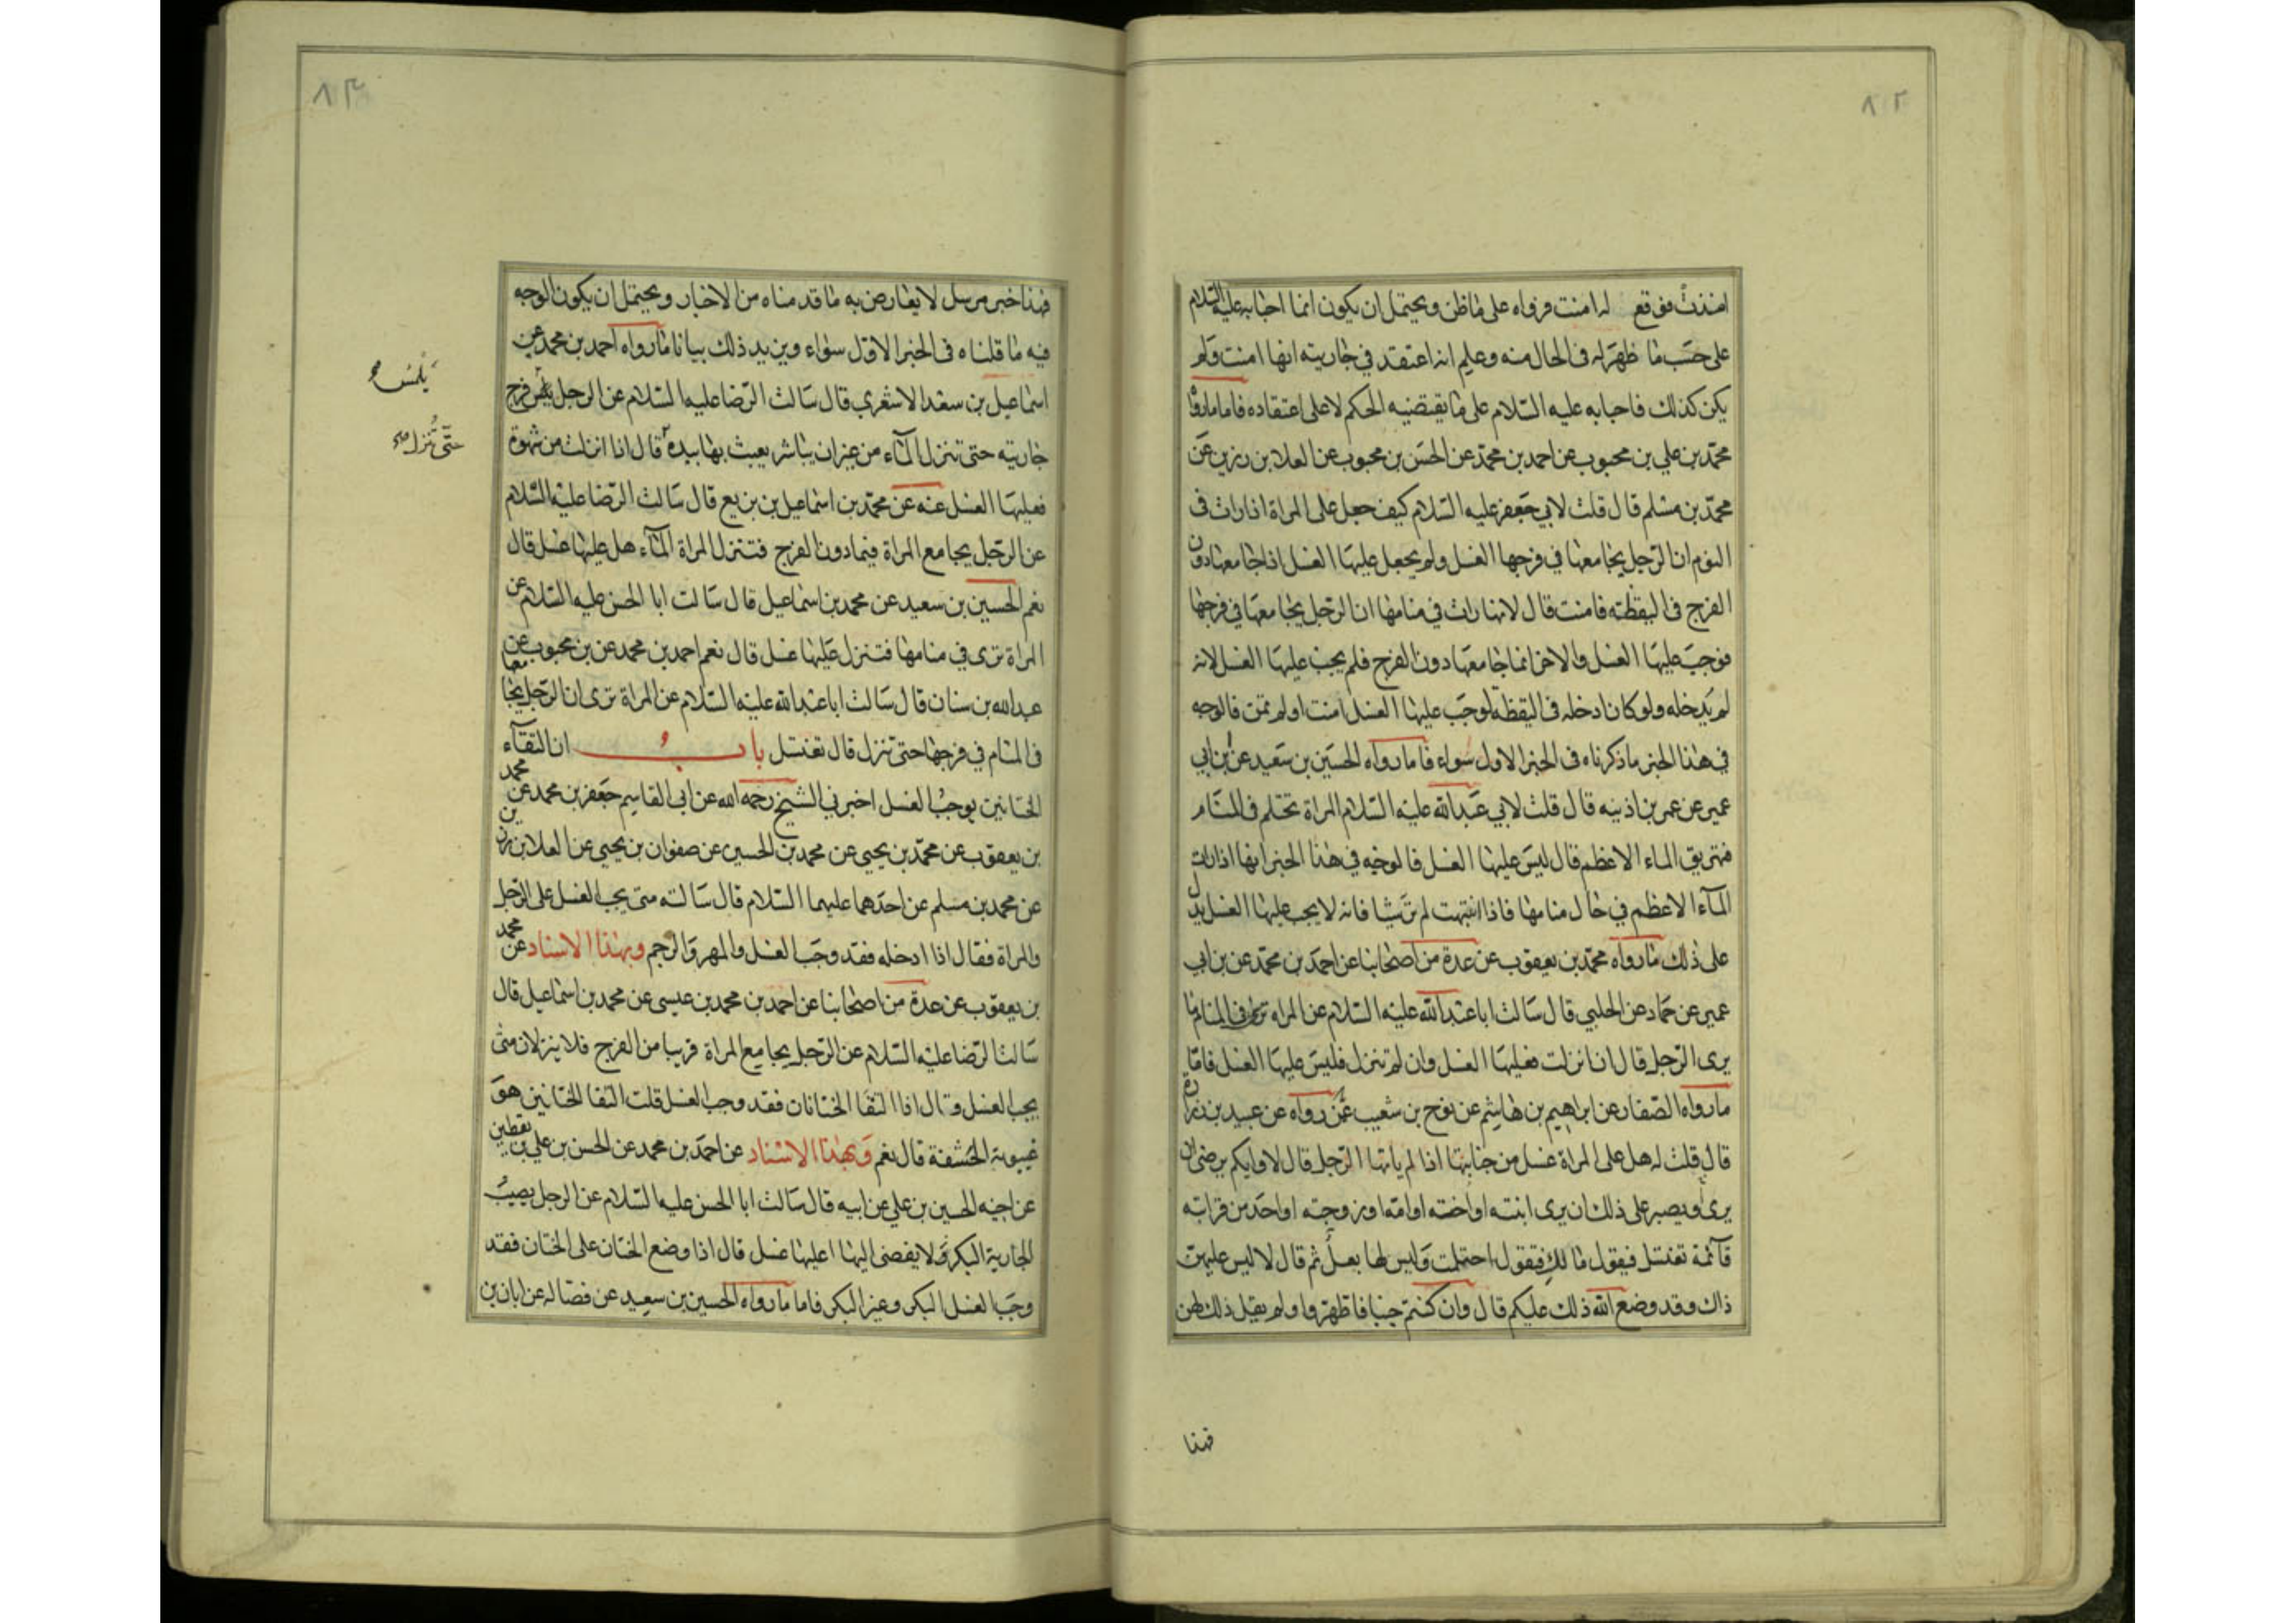 ٨٢
امذت فوقع له امنت فرواه على ما ظن ويحتمل ان يكون انما اجابه عليه السلام
على حسب ما ظهر له في الحال منه وعلم انه اعتقد في جاريته انها امنت ولم
يكن كذلك فاجابه عليه السلام على ما يقتضيه الحكم لا على اعتقاده فاما ما رواه
محمد بن علي بن محبوب عن احمد بن محمد عن الحسن بن محبوب عن العلا بن رزين عن
محمد بن مسلم قال قلت لابي جعفر عليه السلام كيف جعل على المراة اذا رات في
النوم ان الرجل يجامعها في فرجها الغسل ولم يجعل عليها الغسل اذا جامعها دون
الفرج في اليقظة فامنت قال لانها رات في منامها ان الرجل يجامعها في فرجها
فوجب عليها الغسل والاخر انما جامعها دون الفرج فلم يجب عليها الغسل لانه
لم يدخله ولو كان ادخله في اليقظة لوجب عليها الغسل امنت او لم تمن فالوجه
في هذا الخبر ما ذكرناه في الخبر الاول سواء فاما ما رواه الحسين بن سعيد عن بن ابي
عمير عن عمر بن اذينه قال قلت لابي عبد الله عليه السلام المراة تحتلم في المنام
فتهريق الماء الاعظم قال ليس عليها الغسل فالوجه في هذا الخبر انها اذا رات
المآء الاعظم في حال منامها فاذا انتبهت لم تر شيا فانه لا يجب عليها الغسل يدل
على ذلك ما رواه محمد بن يعقوب عن عدة من اصحابنا عن احمد بن محمد عن بن ابي
عمير عن حماد عن الحلبي قال سالت ابا عبد الله عليه السلام عن المراه ترى في المنام ما
يرى الرجل قال ان انزلت فعليها الغسل وان لم تنزل فليس عليها الغسل فاما
ما رواه الصفار عن ابراهيم بن هاشم عن نوح بن شعيب عمن رواه عن عبيد بن زرارة
قال قلت له هل على المراة غسل من جنابتها اذا لم ياتها الرجل قال لا وايكم يرضى ان
يرى ويصبر على ذلك ان يرى ابنته او اخته او امه او زوجته او احد من قرابته
قآئمة تغتسل فيقول ما لك فتقول احتلمت وليس لها بعل ثم قال لا ليس عليهن
ذاك وقد وضع الله ذلك عليكم قال وان كنتم جنبا فاطهروا ولم يقل ذلك لهن
فهذا
٨٣
فهذا خبر مرسل لا يعارض به ما قدمناه من الاخبار ويحتمل ان يكون الوجه
فيه ما قلناه في الخبر الاول سواء ويزيد ذلك بيانا ما رواه احمد بن محمد عن
اسماعيل بن سعد الاشعري قال سالت الرضا عليه السلام عن الرجل يلمس فرج
جاريته حتى تنزل المآء من غير ان يباشر يعبث بها بيده قال اذا انزلت من شهوة
فعليها الغسل عنه عن محمد بن اسماعيل بن بزيع قال سالت الرضا عليه السلام
عن الرجل يجامع المراة فيما دون الفرج فتنزل المراة المآء هل عليها غسل قال
نعم الحسين بن سعيد عن محمد بن اسماعيل قال سالت ابا الحسن عليه السلام عن
المراة ترى في منامها فتنزل عليها غسل قال نعم احمد بن محمد عن بن محبوب عن
عبد الله بن سنان قال سالت ابا عبد الله عليه السلام عن المراة ترى ان الرجل يجامعها
في المنام في فرجها حتى تنزل قال تغتسل باب ان التقآء
الختانين يوجب الغسل اخبرني الشيخ رحمه الله عن ابي القاسم جعفر بن محمد عن محمد
بن يعقوب عن محمد بن يحيى عن محمد بن الحسين عن صفوان بن يحيى عن العلا بن رزين
عن محمد بن مسلم عن احدهما عليهما السلام قال سالته متى يجب الغسل على الرجل
والمراة فقال اذا ادخله فقد وجب الغسل والمهر والرجم وبهذا الاسناد عن محمد
بن يعقوب عن عدة من اصحابنا عن احمد بن محمد بن عيسى عن محمد بن اسماعيل قال
سالت الرضا عليه السلام عن الرجل يجامع المراة قريبا من الفرج فلا ينزلان متى
يجب الغسل وقال اذا التقا الختانان فقد وجب الغسل قلت التقا الختانين هو
غيبوبة الحشفة قال نعم وبهذا الاسناد عن احمد بن محمد عن الحسن بن علي بن يقطين
عن اخيه الحسين بن علي عن ابيه قال سالت ابا الحسن عليه السلام عن الرجل يصيب
الجارية البكر ولا يفضى اليها اعليها غسل قال اذا وضع الختان على الختان فقد
وجب الغسل البكر وغير البكر فاما ما رواه الحسين بن سعيد عن فضاله عن ابان بن
يلمس
حتى تنزل